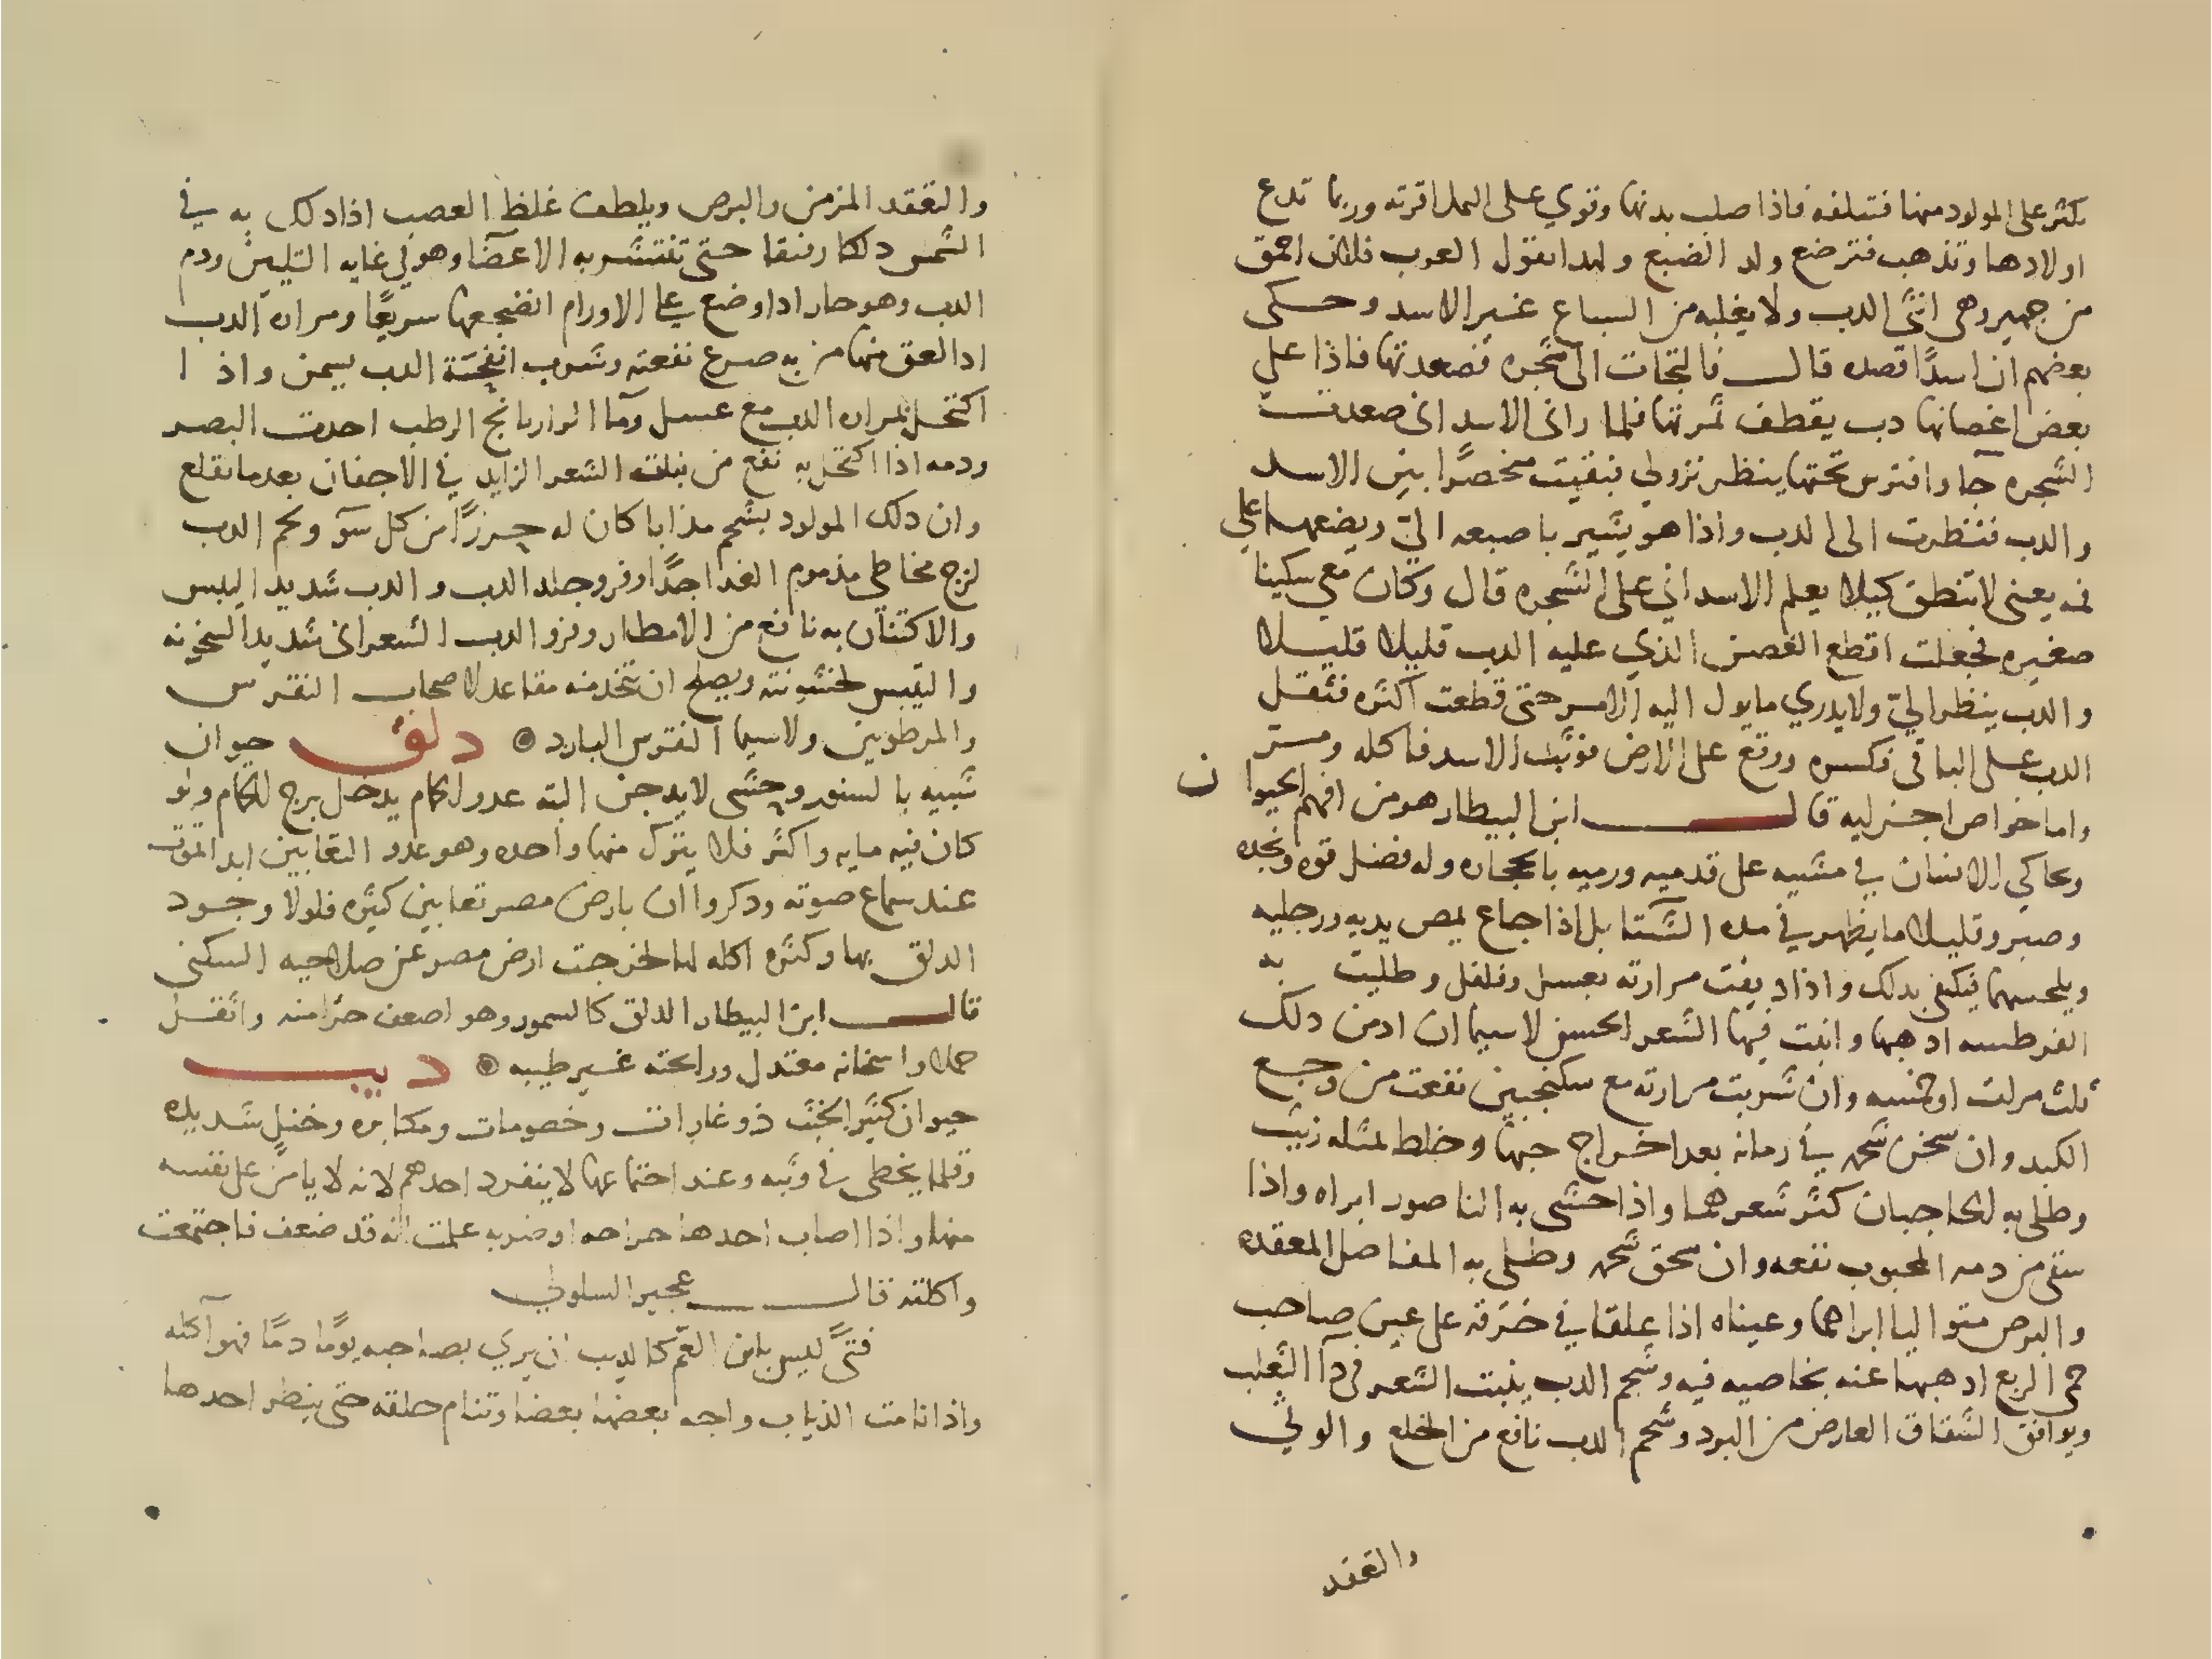 تكثر على المولود منها فتتلفه فاذا صلب بدنها وقوي على النمل اقرته وربما تدع
اولادها وتذهب فترضع ولد الضبع ولهدا تقول العرب فلان احمق
من جهيز وهى انثى الدب ولا يغلبه من السباع غير الاسد وحكى
بعضهم ان اسدًا قصده قال فالتجات الى شجره فصعدتها فاذا على
بعض اغصانها دب يقطف ثمرتها فلما رانى الاسد انى صعدت
الشجره جآ وافترس تحتها ينظر نزولي فبقيت منحصرًا بين الاسد
والدب فنظرت الى الدب واذا هو يشير باصبعه اليّ ويضعها على
فمه يعنى لا تنطق كيلا يعلم الاسد اني على الشجره قال وكان معي سكينا
صغيره فجعلت اقطع الغصن الذي عليه الدب قليلا قليلا
والدب ينظر اليّ ولا يدري ما يول اليه الامر حتى قطعت اكثره فثقل
الدب على الباقى فكسره ووقع على الارض فوثب الاسد فاكله ومر
واما خواص اجزايه قال ابن البيطار هو من افهم الحيوان
وحاكي الانسان في مشيه على قدميه ورميه بالحجاره وله فضل قوه ونجده
وصبر وقليلا ما يظهر في مده الشتا بل اذا جاع يمص يديه ورجليه
ويلحسهما فيكتفى بدلك واذا ديفت مرارته بعسل وفلفل وطليت به
القرطسه ادهبها وانبت فيها الشعر الحسن لاسيما ان ادمن دلك
ثلث مرات او خمسه وان شربت مرارته مع سكنجبين نفعت من وجع
الكبد وان سخن شحمه في رمانه بعد اخراج حبها وخلط بمثله زيت
وطلى به الحاجبان كثر شعرهما واذا حشى به الناصور ابراه واذا
سقى من دمه المجبوب نفعه وان سحق شحمه وطلى به المفاصل المعقده
والبرص متواليا ابراهما وعيناه اذا علقا في خرقه على عين صاحب
حمى الربع ادهبها عنه بخاصيه فيه وشحم الدب ينبت الشعر في دآ الثعلب
ويوافق الشقاق العارض من البرد وشحم الدب نافع من الخلع والوثي
والتعقد
والتعقد المزمن والبرص ويلطف غلظ العصب اذا دلك به في
الشمس دلكا رفيقا حتى تنتشر به الاعضآ وهو في غايه التليين ودم
الدب وهو حار اذا وضع على الاورام انضجها سريعًا ومراره الدب
ادا لعق منها من به صرع نفعته وشرب انفحة الدب يسمن واذا
اكتحل بمراره الدب مع عسل ومآ الرازيانج الرطب احدت البصر
ودمه اذا اكتحل به نفع من نبات الشعر الزايد في الاجفان بعد ما يقلع
وان دلك المولود بشحم مذابا كان له حرزًا من كل سوّ ولحم الدب
لزج مخاطي مذموم الغدا جدًا وفرو جلد الدب والدب شديد اليبس
والاكتنان به نافع من الامطار وفرو الدب الشعرانى شديد السخونه
واليبس لخشونته ويصلح ان يتخذ منه مقاعد لاصحاب النقرس
والمرطوبين ولاسيما النقرس البارد ۞ دلق حيوان
شبيه بالسنور وحشى لا يدجن البته عدو الحمام يدخل برج الحمام ولو
كان فيه مايه واكثر فلا يترك منها واحده وهو عدو الثعابين ابدا تموت
عند سماع صوته ودكروا ان بارض مصر ثعابين كثيره فلولا وجود
الدلق بها وكثره اكله لها لخرجت ارض مصر عن صلاحيه السكنى
قال ابن البيطار الدلق كالسمور وهو اضعف حرًا منه واثقل
حملا واسخانه معتدل ورايحته غير طيبه ۞ ديب
حيوان كثير الخبث ذو غارات وخصومات ومكابره وختل شديده
وقلما يخطى في وثبه وعند اجتماعها لا ينفرد احدهم لانه لا يامن على نفسه
منها واذا اصاب احدها جراحه او ضربه علمت انه قد ضعف فاجتمعت
واكلته قال عجير السلولي
فتىً ليس بابن العمّ كالديب ان يري بصاحبه يومًا دمًا فهو آكله
واذا نامت الذياب واجه بعضها بعضا وتنام حلقه حتى ينظر احدها